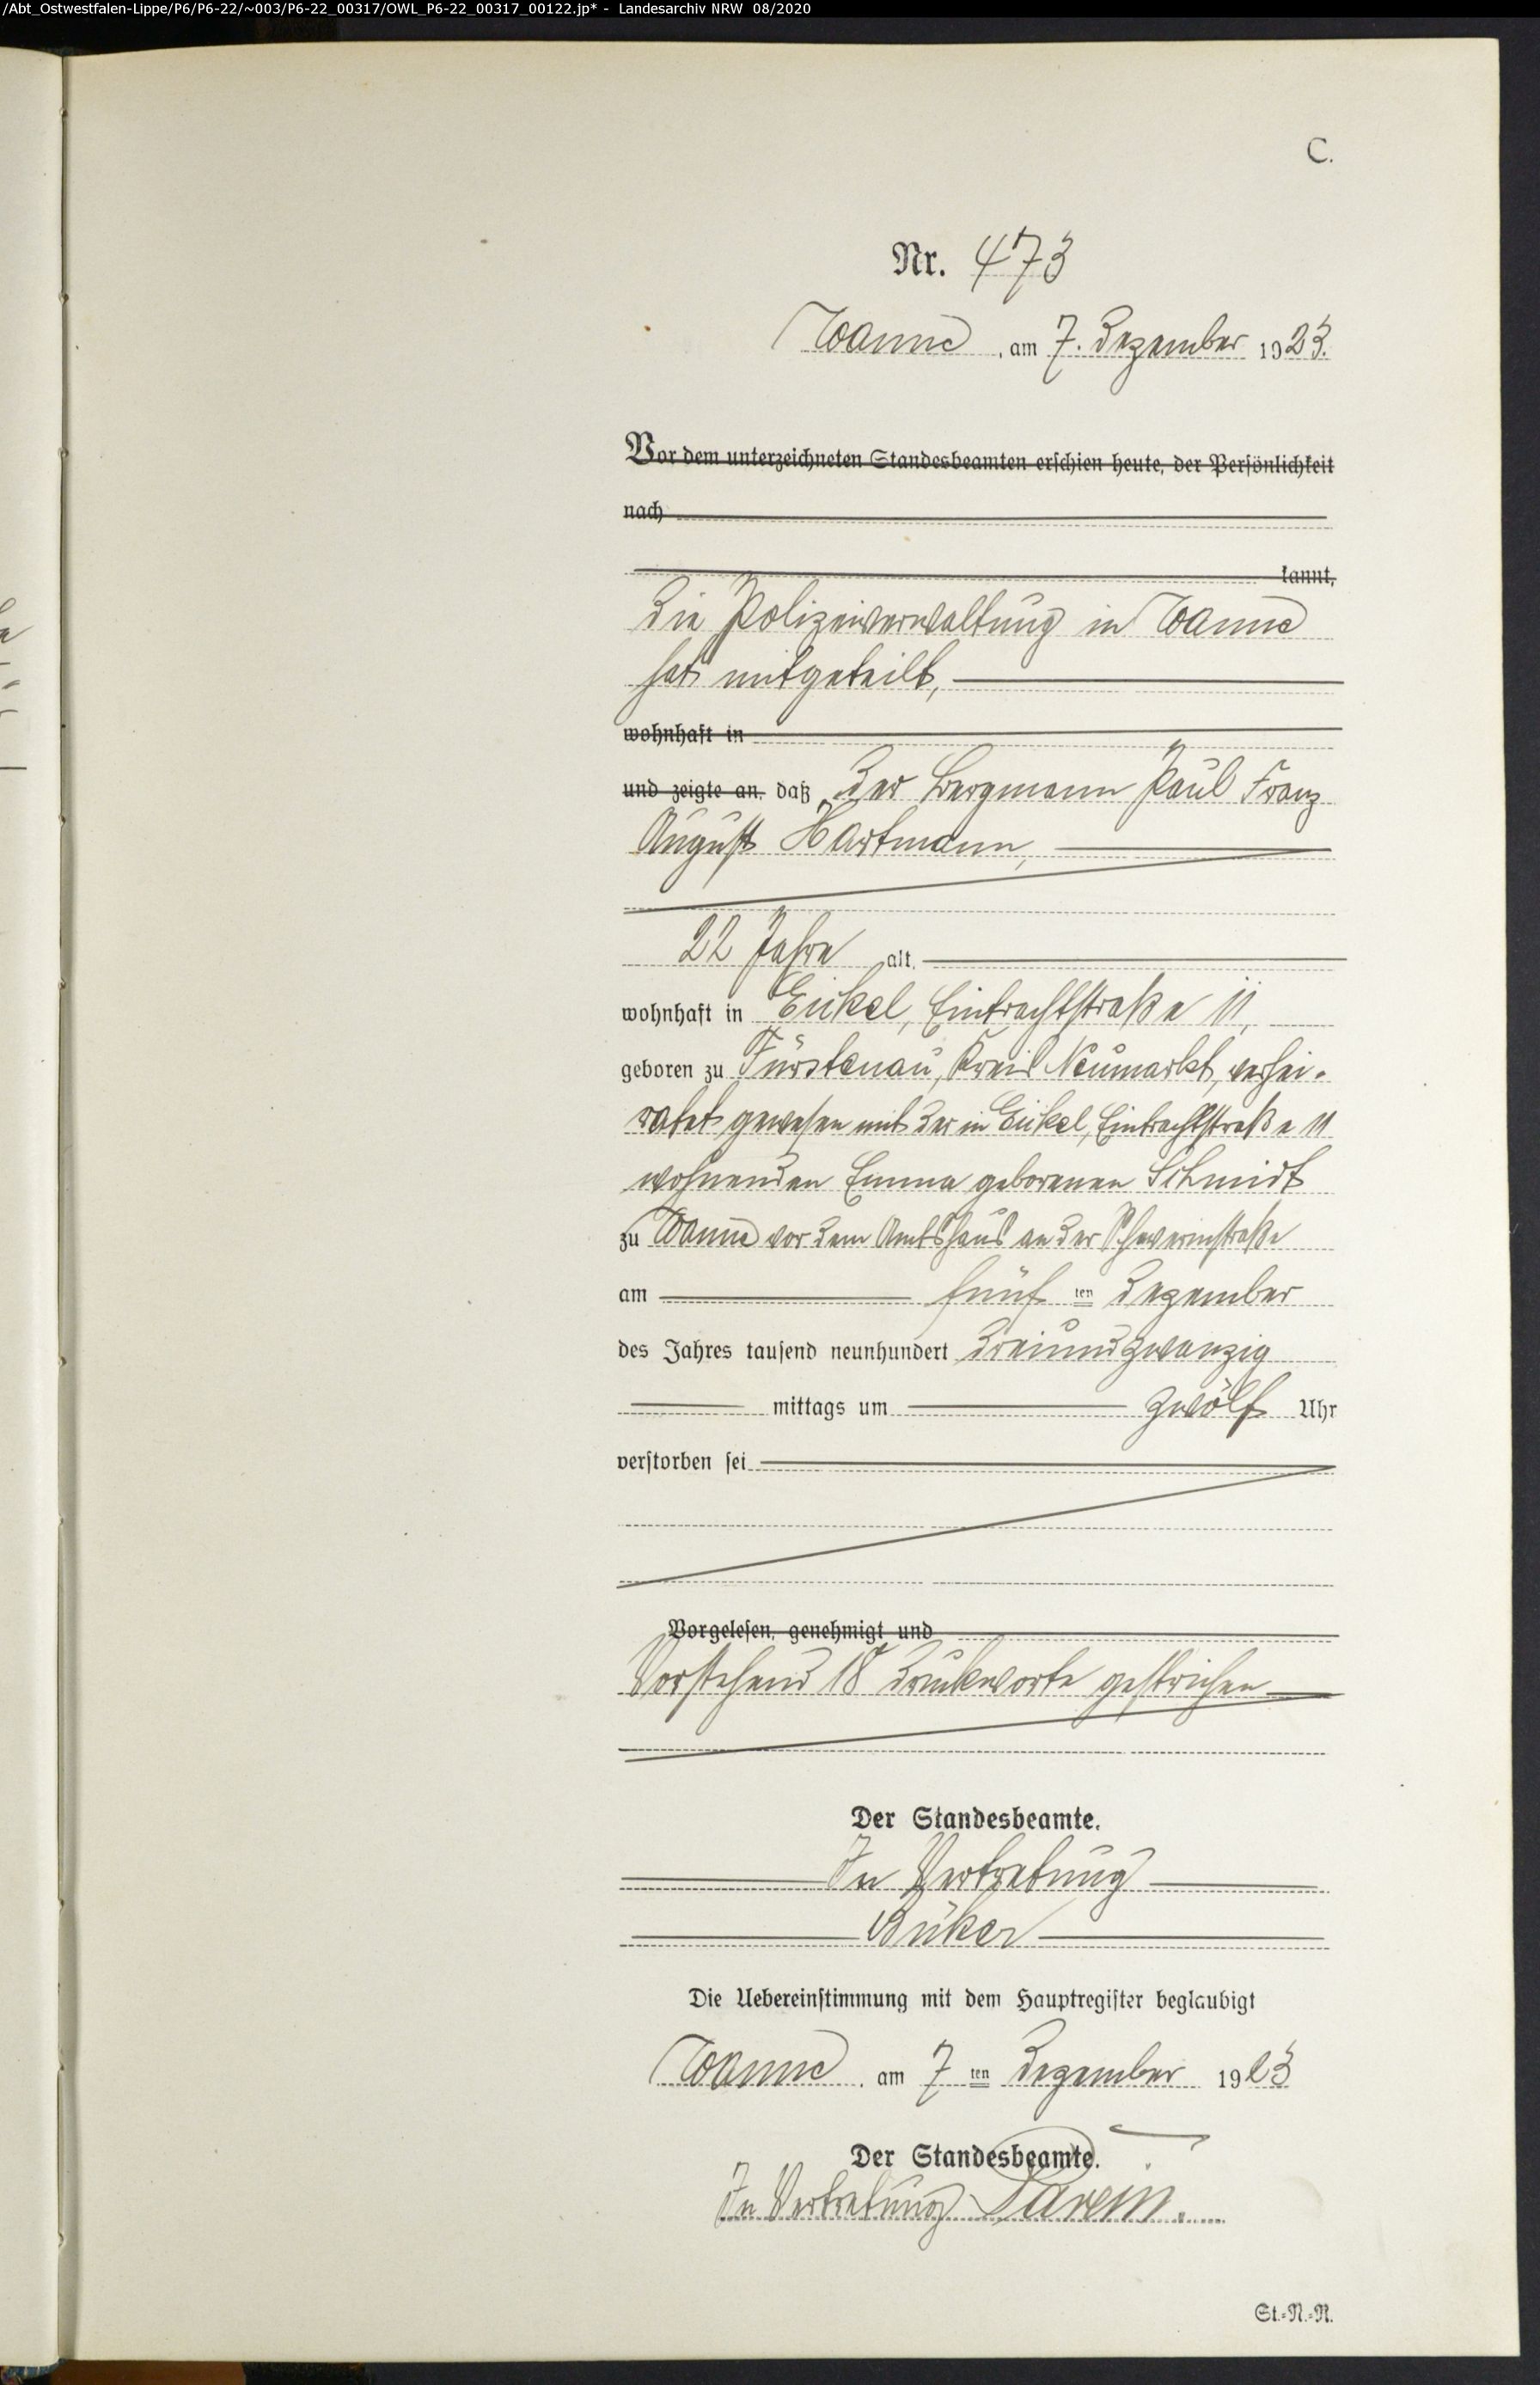 /Abt_Ostwestfalen-Lippe/P6/P6-22/~003/P6-22_00317/OWL_P6-22_00317_00122.jp* - Landesarchiv NRW 08/2020
C.
Nr. 473
Wanne, am 7. Dezember 1923.
Vor dem unterzeichneten Standesbeamten erschien heute, der Persönlichkeit
nach
kannt,
Die Polizeiverwaltung in Wanne
hat mitgeteilt,
wohnhaft in
und zeigte an, daß der Bergmann Paul Franz
August Hartmann,
22 Jahre alt,
wohnhaft in Eickel, Eintrachtstraße 11,
geboren zu Fürstenau, Kreis Neumarkt, verhei-
ratet gewesen mit der in Eickel, Eintrachtstraße 11
wohnenden Emma geborenen Schmidt
zu Wanne vor dem Amtshaus an der Schwerinstraße
am fünf ten Dezember
des Jahres tausend neunhundert dreiundzwanzig
mittags um zwölf Uhr
verstorben sei
Vorgelesen, genehmigt und
Vorstehend 18 Druckworte gestrichen
Der Standesbeamte.
In Vertretung
Büker
Die Uebereinstimmung mit dem Hauptregister beglaubigt
Wanne, am 7 ten Dezember 1923
Der Standesbeamte.
In Vertretung
St.-N.-N.